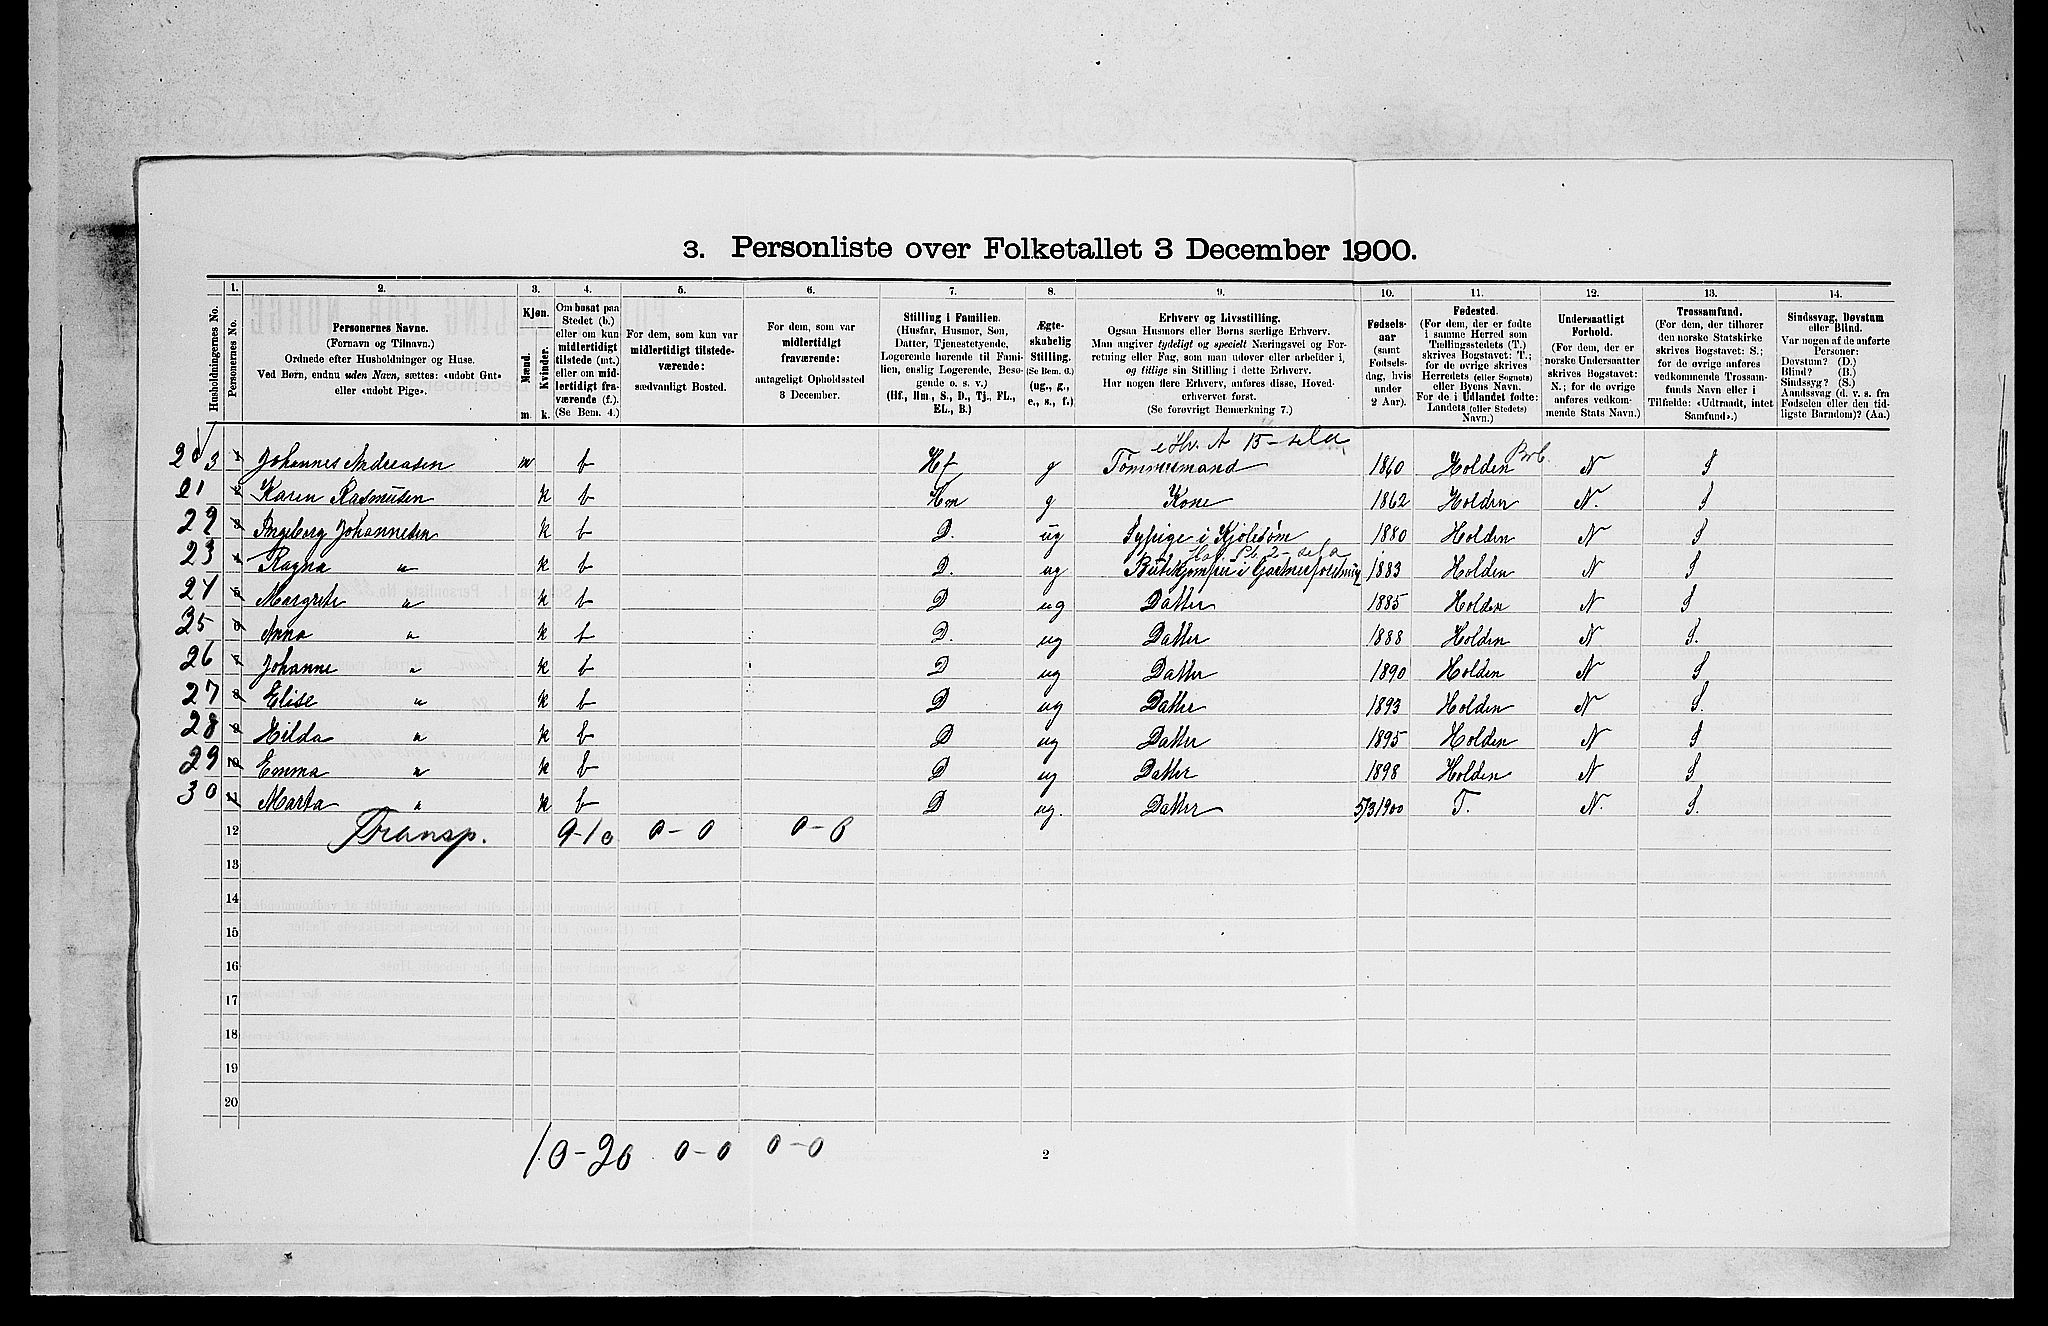 3. Personliste over Folketallet 3 December 1900.
Husholdningernes No.
1.
Personernes No.
2.
Personernes Navne.
(Fornavn og Tilnavn.)
Ordnede efter Husholdninger og Huse.
Ved Børn, endnu uden Navn, sættes: «udøbt Gut»
eller «udøbt Pige».
3.
Kjøn.
Mænd.
m.
Kvinder.
k.
4.
Om bosat paa
Stedet (b.)
eller om kun
midlertidigt
tilstede (mt.)
eller om mid-
lertidigt fra-
værende (f.).
(Se Bem. 4.)
5.
For dem, som kun var
midlertidigt tilstede-
værende:
sædvanligt Bosted.
6.
For dem, som var
midlertidigt
fraværende:
antageligt Opholdssted
3 December.
7.
Stilling i Familien.
(Husfar, Husmor, Søn,
Datter, Tjenestetyende,
Logerende hørende til Fami-
lien, enslig Logerende, Besø-
gende o. s. v.)
(Hf., Hm., S., D., Tj., FL.,
EL., B.)
8.
Ægte-
skabelig
Stilling.
(Se Bem. 6.)
(ug., g.,
e., s., f.)
9.
Erhverv og Livsstilling.
Ogsaa Husmors eller Børns særlige Erhverv.
Man angiver tydeligt og specielt Næringsvei og For-
retning eller Fag, som man udøver eller arbeider i,
og tillige sin Stilling i dette Erhverv.
Har nogen flere Erhverv, anføres disse, Hoved-
erhvervet først.
(Se forøvrigt Bemærkning 7.)
10.
Fødsels-
aar
(samt
Fødsels-
dag, hvis
under
2 Aar).
11.
Fødested.
(For dem, der er fødte
i samme Herred som
Tællingsstedets (T.)
skrives Bogstavet: T.;
for de øvrige skrives
Herredets (eller Sognets)
eller Byens Navn.
For de i Udlandet fødte:
Landets (eller Stedets)
Navn.)
12.
Undersaatligt
Forhold.
(For dem, der er
norske Undersaatter
skrives Bogstavet:
N.; for de øvrige
anføres vedkom-
mende Stats Navn.)
13.
Trossamfund.
(For dem, der tilhører
den norske Statskirke
skrives Bogstavet: S.;
for de øvrige anføres
vedkommende Trossam-
funds Navn eller i
Tilfælde: «Udtraadt, intet
Samfund».)
14.
Sindssvag, Døvstum
eller Blind.
Var nogen af de anførte
Personer:
Døvstum? (D.)
Blind? (B.)
Sindssyg? (S.)
Aandssvag (d. v. s. fra
Fødselen eller den tid-
ligste Barndom)? (Aa.)
20 3 1 Johannes Andreasen m b Hf g Tømmermand 1860 Holden N S
21 2 Karen Rasmusen k b Hm g Kone 1862 Holden N. S
22 3 Ingeborg Johannesen k b D. ug Sypige i Kjolesøm 1880 Holden N S
23 4 Ragna " k b D. ug 1883 Holden N S
24 5 Margrete " k b D ug Datter 1885 Holden N S
25 6 Anna " k b D. ug Datter 1888 Holden N S.
26 7 Johanne " k b D ug Datter 1890 Holden N S
27 8 Elise " k b D ug Datter 1893 Holden N S.
28 9 Hilda " k b D ug Datter 1895 Holden N S
29 10 Emma " k b D ug Datter 1898 Holden N S
30 11 Marta " k b D ug. Datter 5/3 1900 T. N. S.
12 Transp. 9-10 0-0 0-0
13
14
15
16
17
18
19
20
10-20 0-0 0-0
2